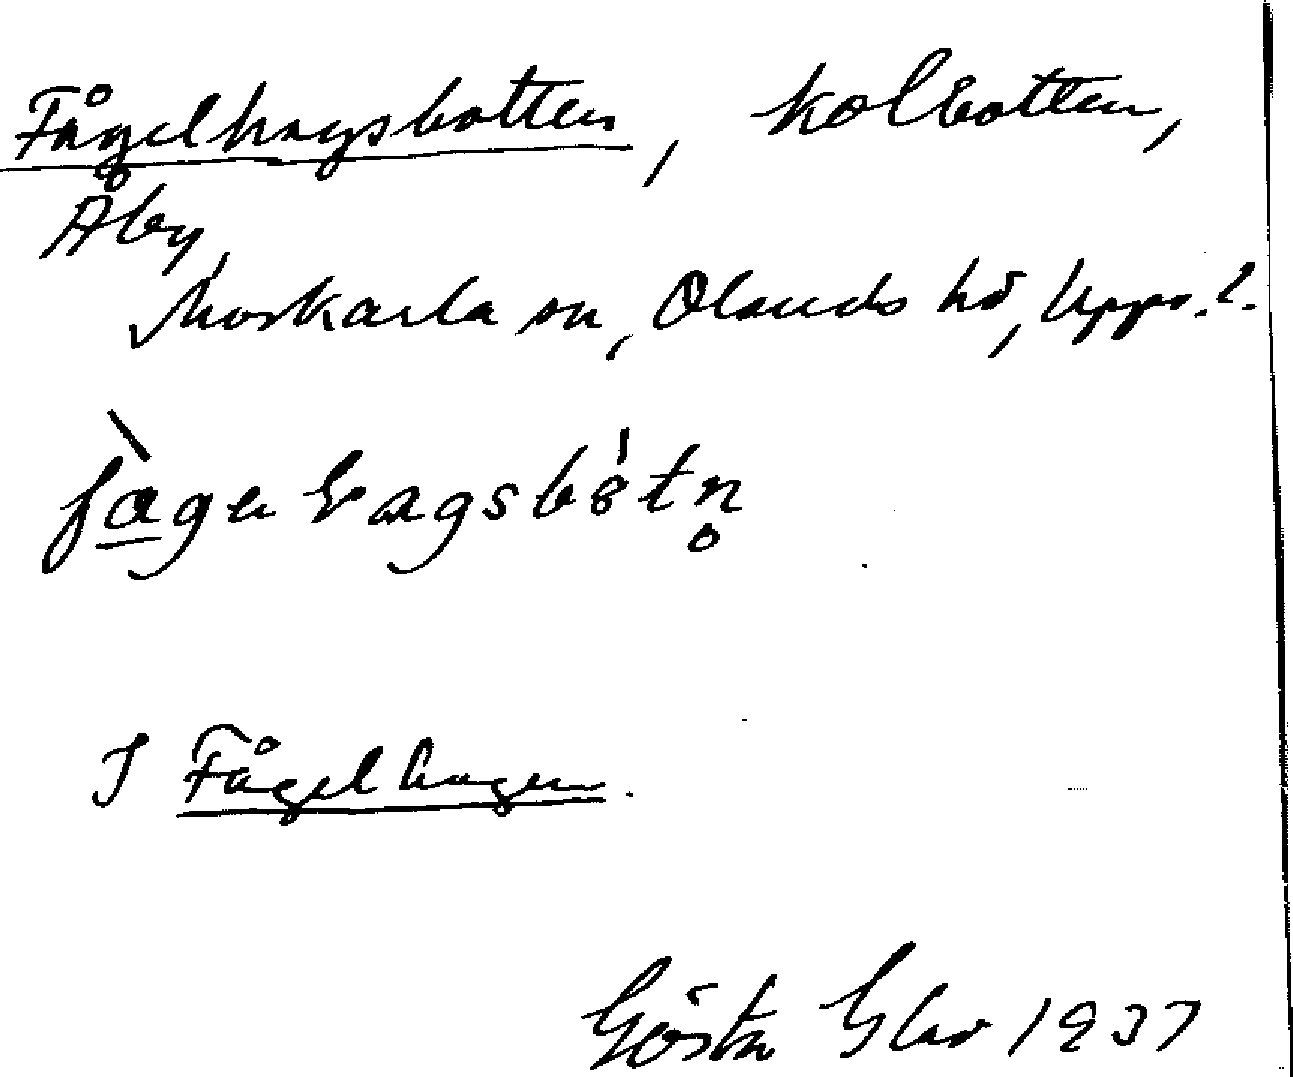 Fågelhagsbotten, kolbotten,
Åby,
Morkarla sn, Olands hd, Upps. l.
I Fågelhagen.
Gösta 1937